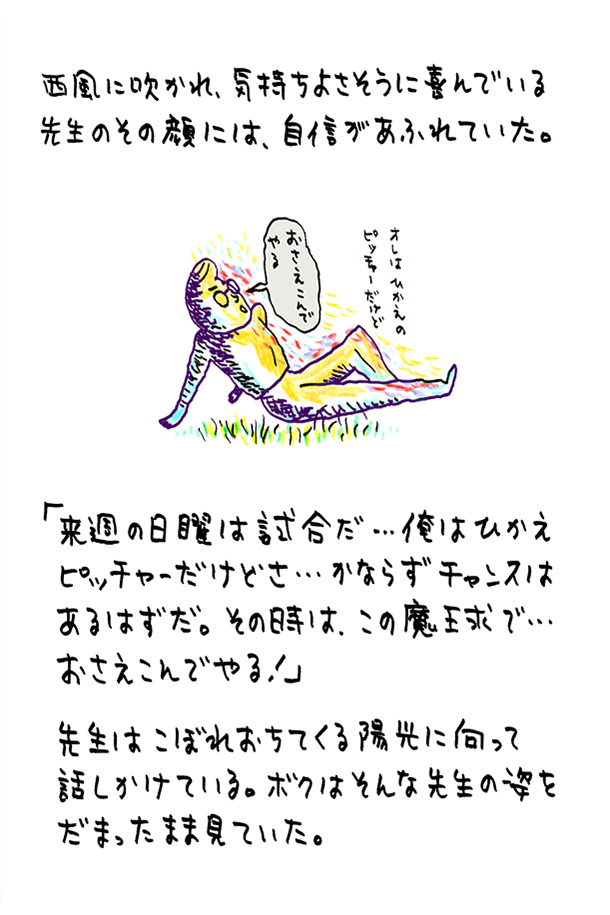 西風に吹かれ、気持ちよさそうに喜んでいる
先生のその顔には、自信があふれていた。
オレはひかえの
ピッチャーだけど
おさえこんで
やる
「来週の日曜は試合だ…俺はひかえ
ピッチャーだけどさ…かならずチャンスは
あるはずだ。その時は、この魔王求で…
おさえこんでやる!」
先生はこぼれおちてくる陽光に向って
話しかけている。ボクはそんな先生の姿を
だまったまま見ていた。